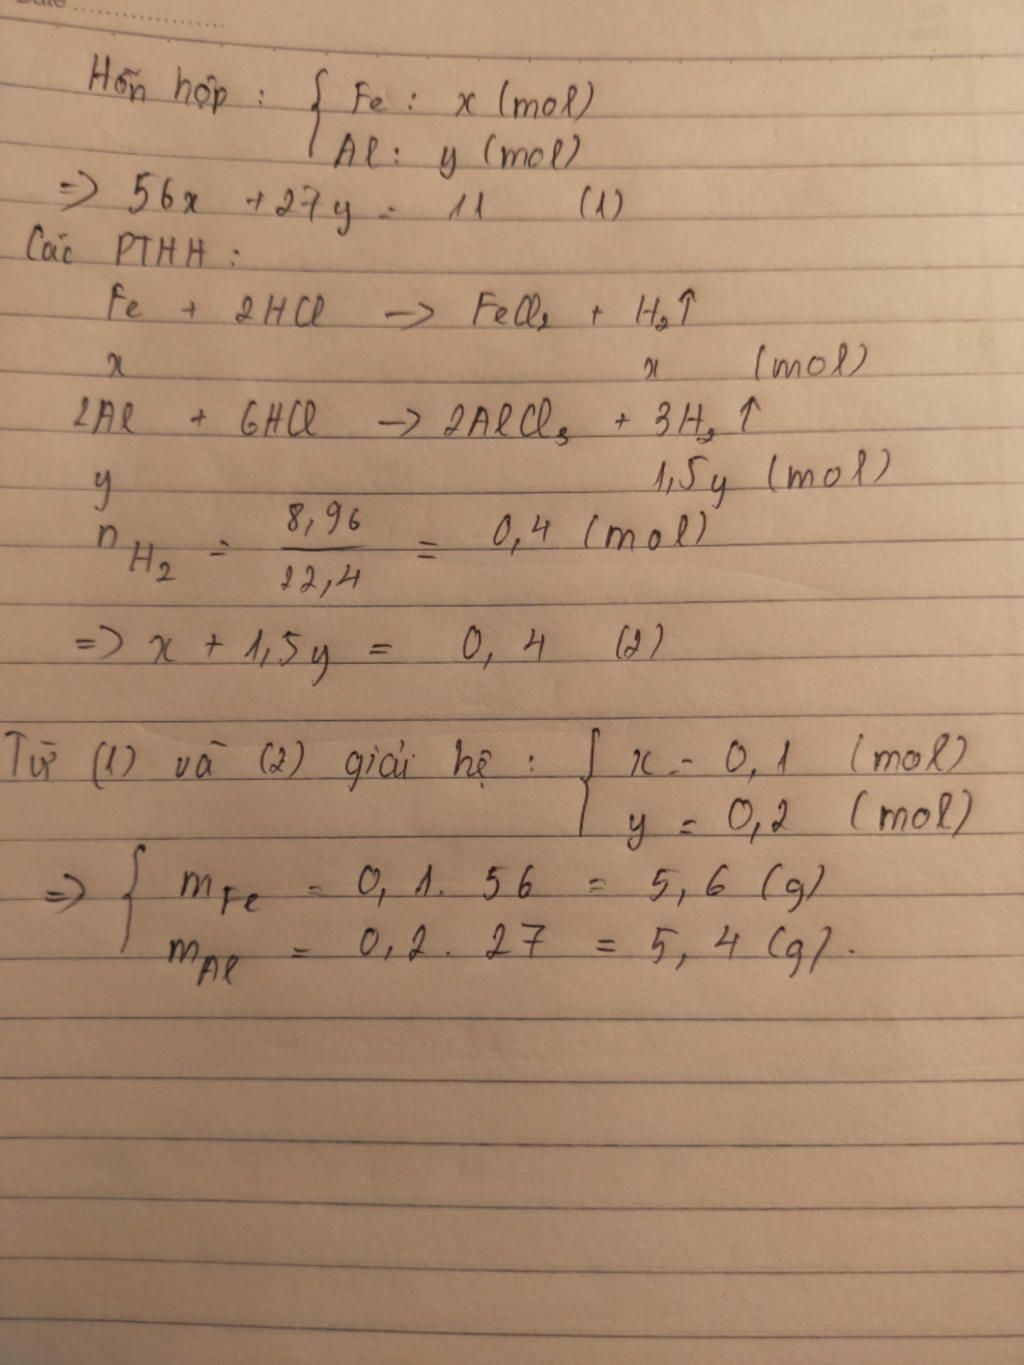 Date
Hỗn hợp : { Fe : x (mol)
Al : y (mol)
=> 56x + 27y = 11 (1)
Các PTHH :
Fe + 2HCl -> FeCl₂ + H₂↑
x x (mol)
2Al + 6HCl -> 2AlCl₃ + 3H₂↑
y 1,5y (mol)
n H₂ = 8,96 / 22,4 = 0,4 (mol)
=> x + 1,5y = 0,4 (2)
Từ (1) và (2) giải hệ : { x = 0,1 (mol)
y = 0,2 (mol)
=> { m Fe = 0,1. 56 = 5,6 (g)
m Al = 0,2. 27 = 5,4 (g).